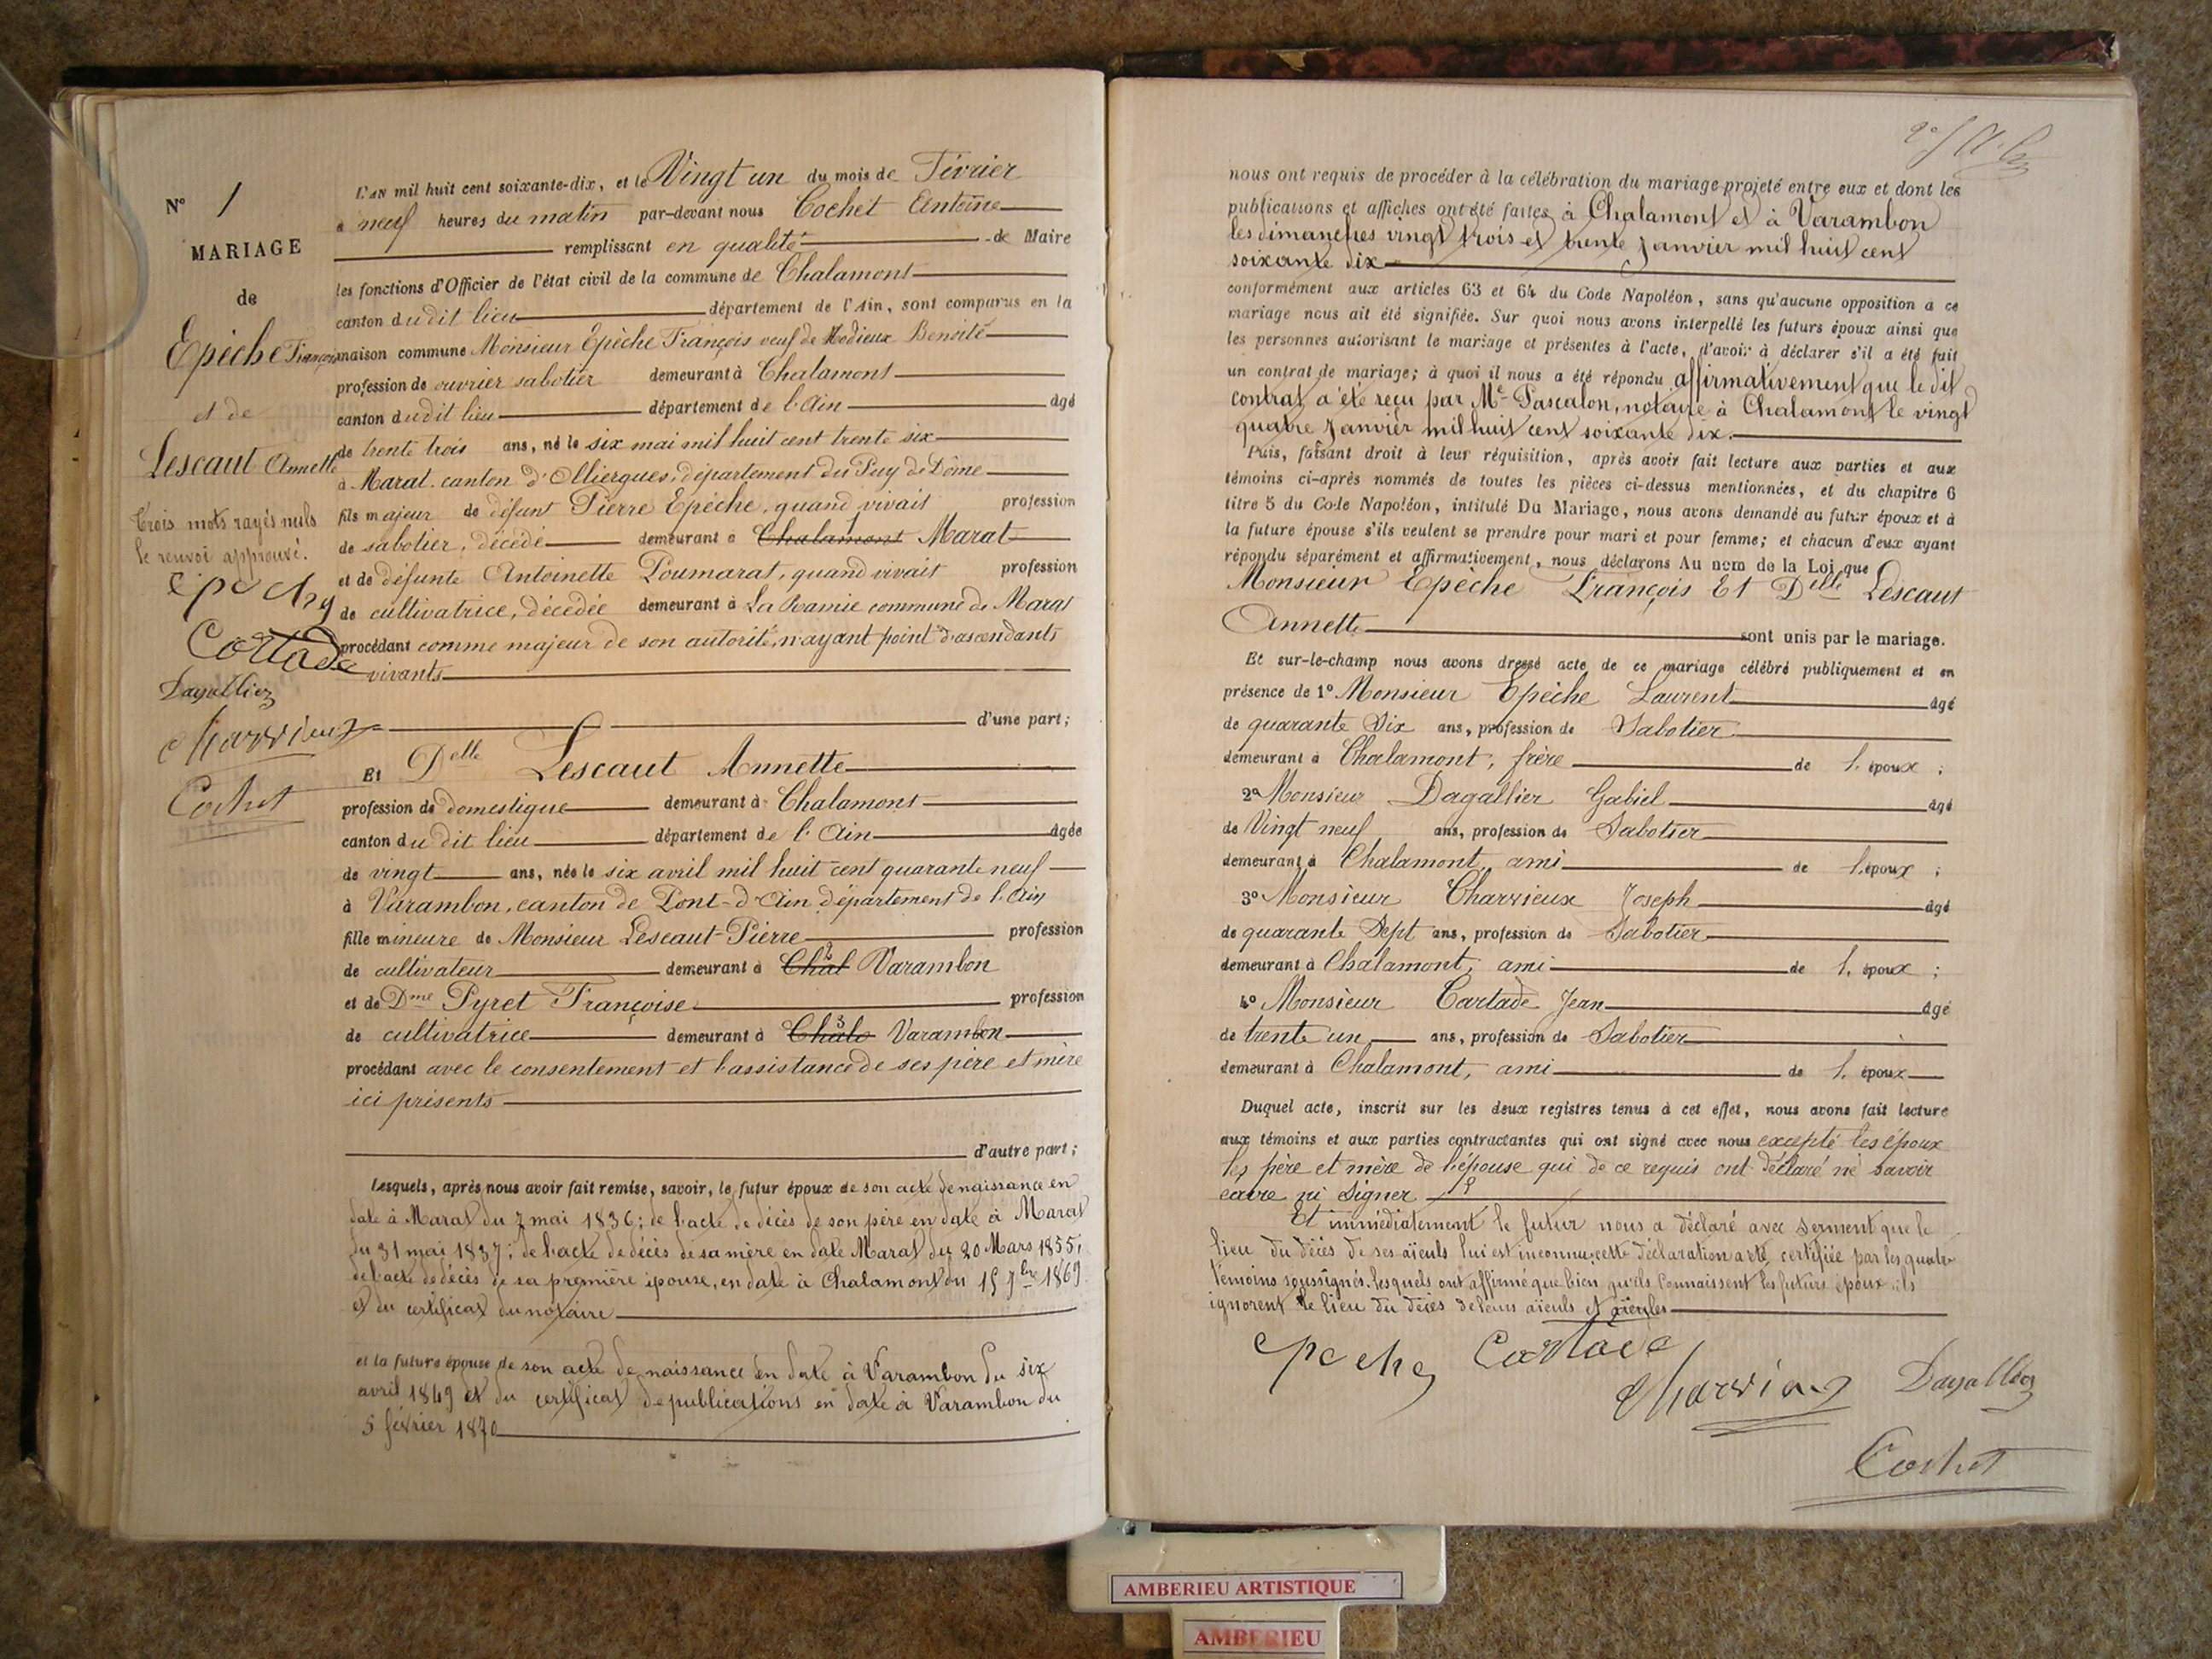 N° 1
MARIAGE
de
Epèche François
et de
Lescaut Annette
trois mots rayés nuls
le renvoi approuvé.
Epeche
Cortade
Dagallier
Charvieux
Cochet
L'AN mil huit cent soixante-dix, et le Vingt un du mois de Février
à neuf heures du matin par-devant nous Cochet Antoine
remplissant en qualité de Maire
les fonctions d'Officier de l'état civil de la commune de Chalamont
canton du dit lieu département de l'Ain, sont comparus en la
maison commune Monsieur Epèche François veuf de Modieux Benoite
profession de ouvrier sabotier demeurant à Chalamont
canton du dit lieu département de l'Ain âgé
de trente trois ans, né le six mai mil huit cent trente six
à Marat, canton d'Olliergues, département du Puy de Dôme
fils majeur de défunt Pierre Epèche, quand vivait profession
de sabotier, décédé demeurant à Chalamont Marat
et de défunte Antoinette Poumarat, quand vivait profession
de cultivatrice, décédée demeurant à La Ramie commune de Marat
procédant comme majeur de son autorité, n'ayant point d'ascendants
vivants
d'une part;
Et Delle Lescaut Annette
profession de domestique demeurant à Chalamont
canton du dit lieu département de l'Ain âgée
de vingt ans, née le six avril mil huit cent quarante neuf
à Varambon, canton de Pont-d'Ain, département de l'Ain
fille mineure de Monsieur Lescaut Pierre profession
de cultivateur demeurant à Chal 2 Varambon
et de Dme Pyret Françoise profession
de cultivatrice demeurant à Chala 3 Varambon
procédant avec le consentement et l'assistance de ses père et mère
ici présents
d'autre part;
Lesquels, après nous avoir fait remise, savoir, le futur époux de son acte de naissance en
date à Marat du 7 mai 1836; de l'acte de décès de son père en date à Marat
du 31 mai 1837; de l'acte de décès de sa mère en date Marat du 20 Mars 1855;
de l'acte de décès de sa première épouse, en date à Chalamont du 15 7bre 1869
et du certificat du notaire
et la future épouse de son acte de naissance en date à Varambon du six
avril 1849 et du certificat de publications en date à Varambon du
5 février 1870
nous ont requis de procéder à la célébration du mariage projeté entre eux et dont les
publications et affiches ont été faites à Chalamont et à Varambon
les dimanches vingt trois et trente Janvier mil huit cent
soixante dix
conformément aux articles 63 et 64 du Code Napoléon, sans qu'aucune opposition a ce
mariage nous ait été signifiée. Sur quoi nous avons interpellé les futurs époux ainsi que
les personnes autorisant le mariage et présentes à l'acte, d'avoir à déclarer s'il a été fait
un contrat de mariage; à quoi il nous a été répondu affirmativement que le dit
contrat a été reçu par Me Pascalon, notaire à Chalamont le vingt
quatre Janvier mil huit cent soixante dix.
Puis, faisant droit à leur réquisition, après avoir fait lecture aux parties et aux
témoins ci-après nommés de toutes les pièces ci-dessus mentionnées, et du chapitre 6
titre 5 du Code Napoléon, intitulé Du Mariage, nous avons demandé au futur époux et à
la future épouse s'ils veulent se prendre pour mari et pour femme; et chacun d'eux ayant
répondu séparément et affirmativement, nous déclarons Au nom de la Loi que
Monsieur Epèche François Et Delle Lescaut
Annette sont unis par le mariage.
Et sur-le-champ nous avons dressé acte de ce mariage célébré publiquement et en
présence de 1° Monsieur Epèche Laurent âgé
de quarante Six ans, profession de Sabotier
demeurant à Chalamont, frère de l'époux;
2° Monsieur Dagallier Gabiel âgé
de Vingt neuf ans, profession de Sabotier
demeurant à Chalamont, ami de l'époux;
3° Monsieur Charvieux Joseph âgé
de quarante Sept ans, profession de Sabotier
demeurant à Chalamont, ami de l'époux;
4° Monsieur Cartade Jean âgé
de trente un ans, profession de Sabotier
demeurant à Chalamont, ami de l'époux
Duquel acte, inscrit sur les deux registres tenus à cet effet, nous avons fait lecture
aux témoins et aux parties contractantes qui ont signé avec nous excepté les époux
les père et mère de l'épouse qui de ce requis ont déclaré ne savoir
écrire ni signer
Et immédiatement le futur nous a déclaré avec serment que le
lieu du décès de ses aïeuls lui est inconnu, cette déclaration a été certifiée par les quatre
témoins soussignés, lesquels ont affirmé que bien qu'ils connaissent les futurs époux, ils
ignorent le lieu du décès de leurs aïeuls et aïeules
Epeche Cortade
Charvieux Dagallier
Cochet
AMBERIEU ARTISTIQUE
AMBERIEU